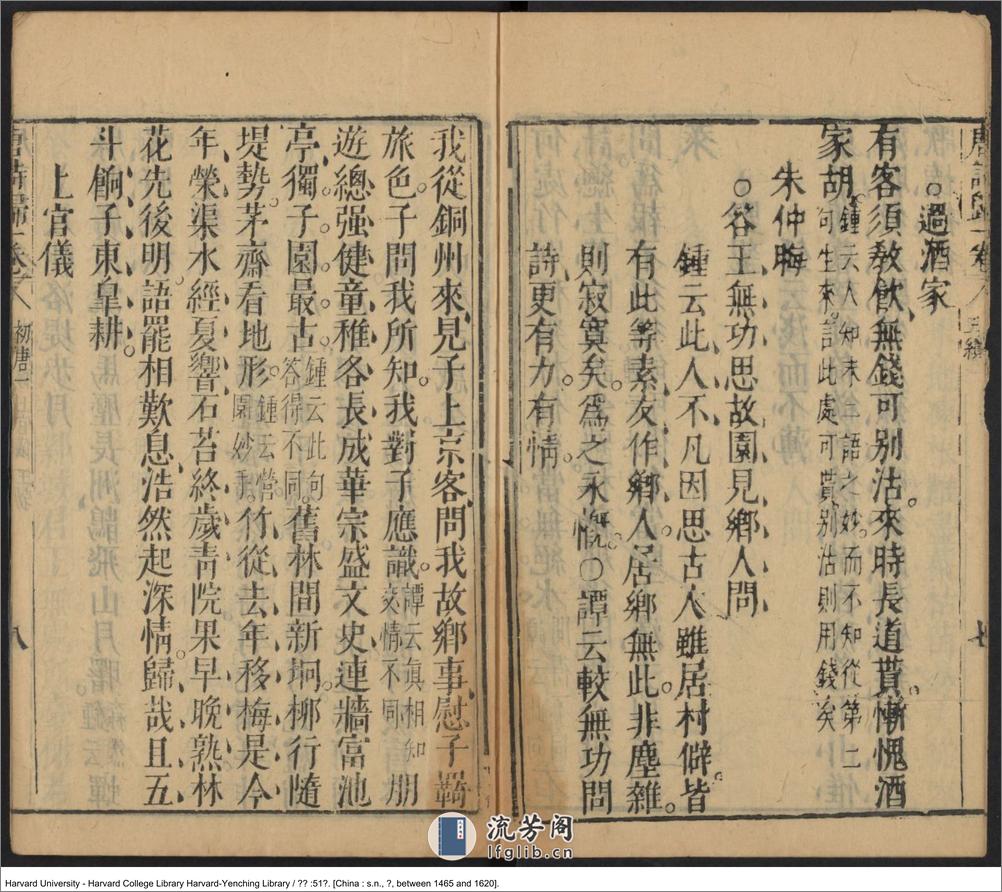 ○過酒家
有客須教飲無錢可別沽。來時長道貰慚愧酒
家胡。鍾云人知末三語之妙而不知從第二句生來。言此處可貰別沽則用錢矣
朱仲晦
○答王無功思故園見鄉人問
鍾云此人不凡因思古人雖居村僻皆
有此等素友作鄉人。居鄉無此。非塵雜。
則寂寞矣。爲之永慨。○譚云較無功問
詩更有力。有情。
七
我從銅州來見子上京客問我故鄉事慰子羇
旅色。子問我所知。我對子應識。譚云真相知文情不同朋
遊總强健童稚各長成華宗盛文史連牆富池
亭獨子園最古。鍾云此句答得不同。舊林間新坰柳行隨
堤勢。茅齋看地形。鍾云營園妙手。竹從去年移梅是今
年榮渠水經夏響石苔終歲青院果早晚熟林
花先後明。語罷相歎息浩然起深情。歸哉且五
斗餉子東皐耕。
上官儀
唐詩歸 卷一 初唐一
八
流芳阁
lfglib.cn
Harvard University - Harvard College Library Harvard-Yenching Library / ?? :51?. [China : s.n., ?, between 1465 and 1620].